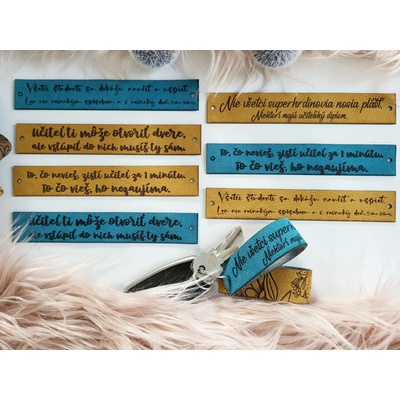 Všetci študenti sa dokážu naučiť a uspieť.
učiteľ ti môže otvoriť dvere,
ale vstúpiť do nich musíš ty sám.
To, čo nevieš, zistí učiteľ za 1 minútu.
To čo vieš, ho nezaujíma.
učiteľ ti môže otvoriť dvere,
ale vstúpiť do nich musíš ty sám.
Nie všetci superhrdinovia nosia plášť,
Niektorí majú učiteľský diplom.
To, čo nevieš, zistí učiteľ za 1 minútu.
To čo vieš, ho nezaujíma.
Všetci študenti sa dokážu naučiť a uspieť.
Nie všetci superh
Niektorí majú